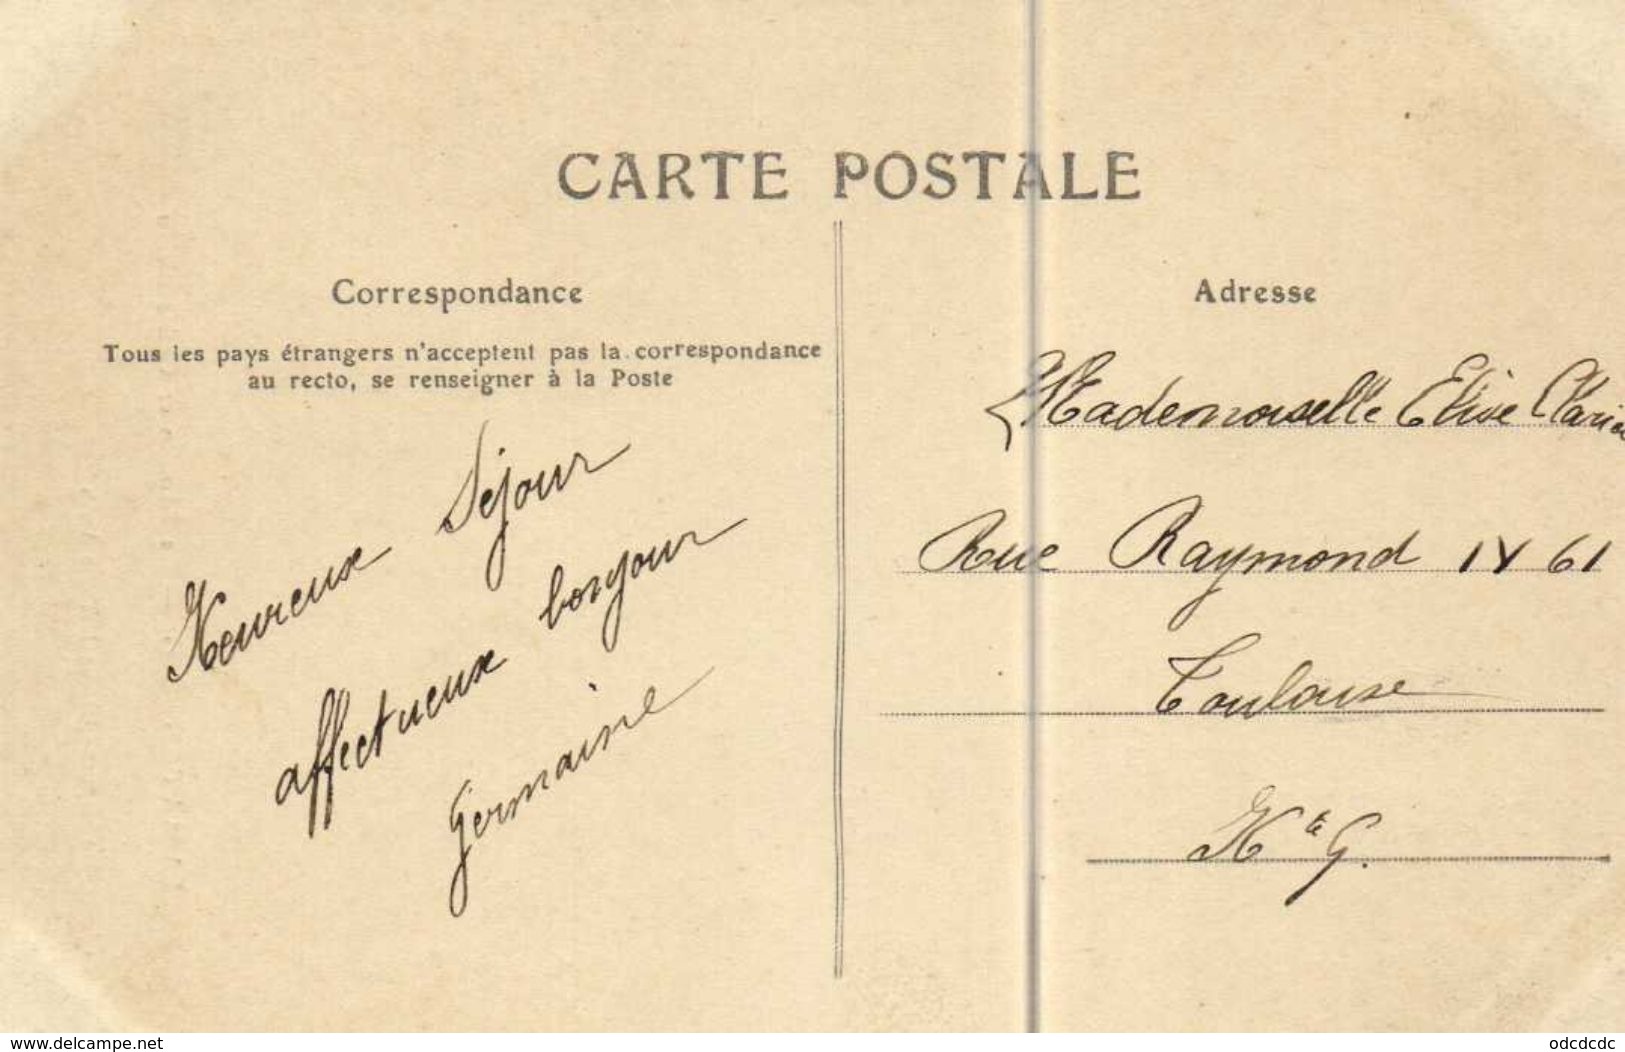 CARTE POSTALE
Correspondance
Tous les pays étrangers n'acceptent pas la correspondance
au recto, se renseigner à la Poste
Heureux Séjour
affectueux bonjour
Germaine
Adresse
Mademoiselle Elise
Rue Raymond IV 61
Toulouse
Hte G.
www.delcampe.net
odcdcdc